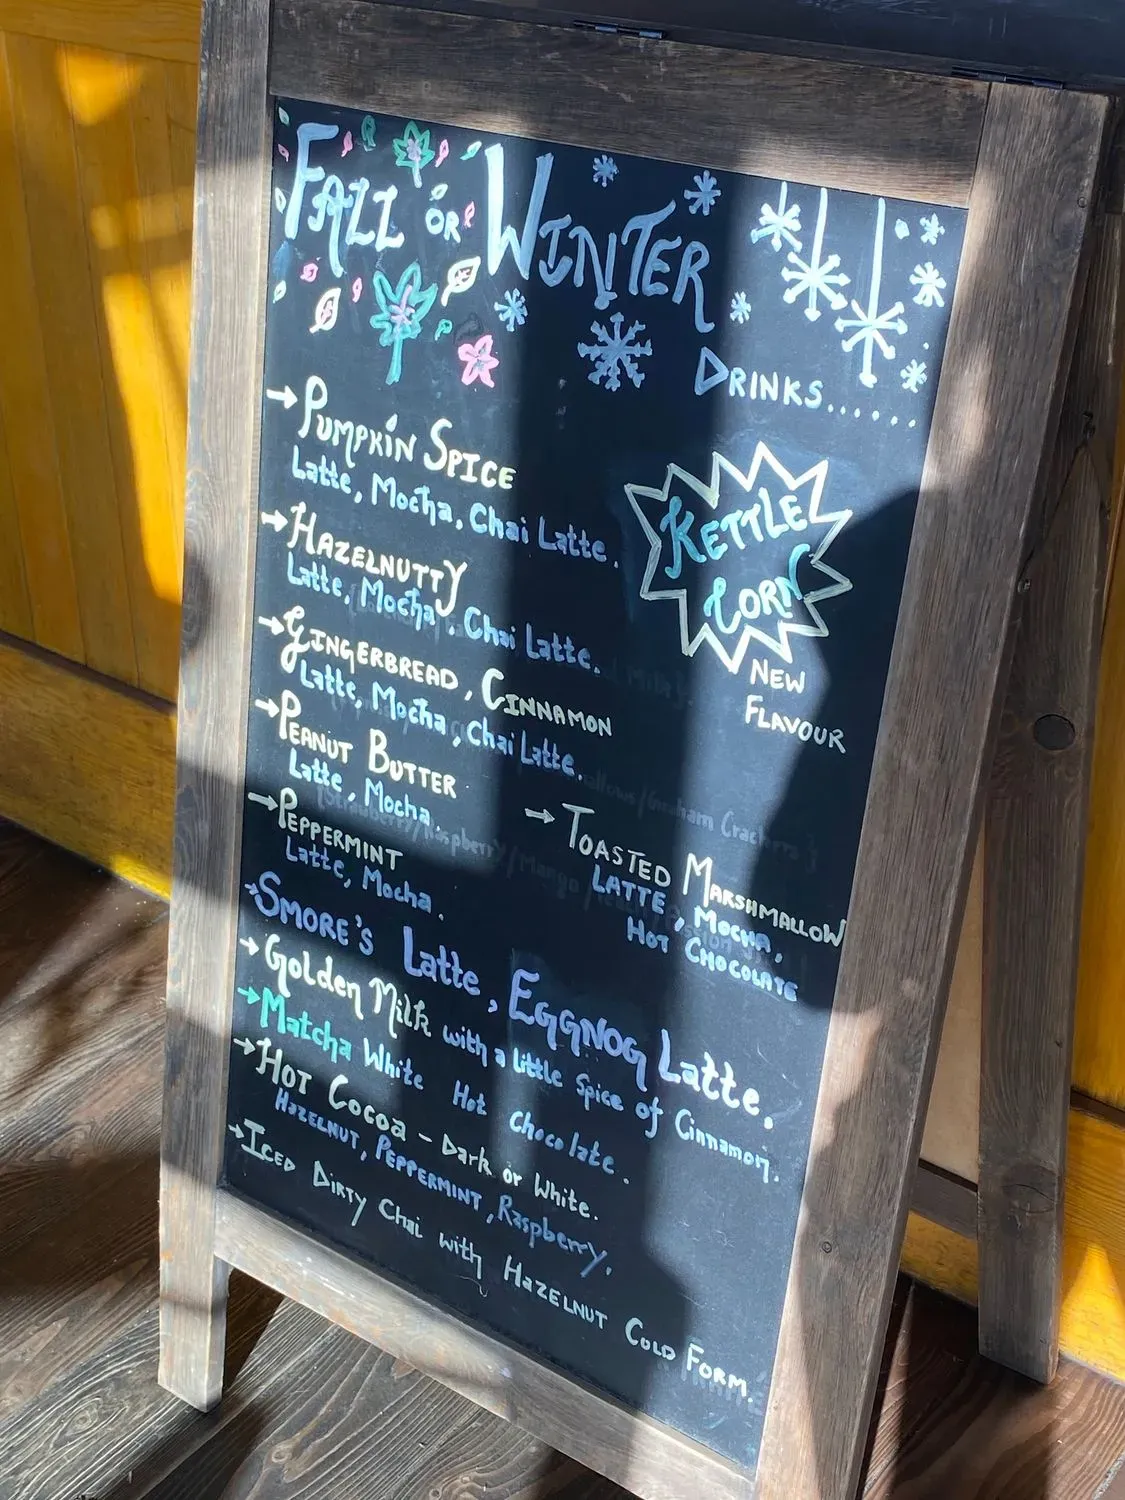 FALL OR WINTER
DRINKS......
→ PUMPKIN SPICE
Latte, Mocha, Chai Latte.
→ HAZELNUTTY
Latte, Mocha, Chai Latte.
→ GINGERBREAD, CINNAMON
Latte, Mocha, Chai Latte.
→ PEANUT BUTTER
Latte, Mocha.
→ PEPPERMINT
Latte, Mocha.
KETTLE
CORN
NEW
FLAVOUR
→ TOASTED MARSHMALLOW
LATTE, MOCHA,
HOT CHOCOLATE
→ SMORE'S Latte, EGGNOG Latte.
→ Golden Milk with a little Spice of Cinnamon.
→ Matcha White Hot Chocolate.
→ HOT COCOA - Dark or White.
HAZELNUT, PEPPERMINT, Raspberry.
→ ICED DIRTY Chai with HAZELNUT COLD FORM.